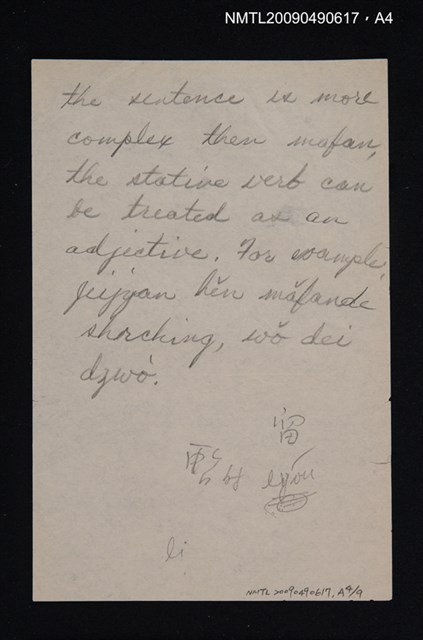 NMTL20090490617，A4
the sentence is more
complex then mafan,
the stative verb can
be treated as an
adjective. For example,
jeijyan hěn máfande
shrching, wǒ dei
dzwò.
留
li
NMTL 20090490617, A4/9